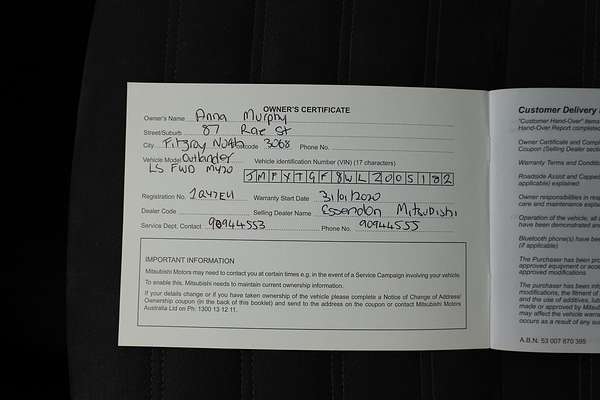 OWNER'S CERTIFICATE
Owner's Name Anna Murphy
Street/Suburb 87 Rae St
City Fitzroy North code 3068 Phone No.
Vehicle Model Outlander Vehicle identification Number (VIN) (17 characters)
LS FWD MY20
Registration No. 1QY7EU Warranty Start Date 31/01/2020
Dealer Code Selling Dealer Name Essendon Mitsubishi
Service Dept. Contact 90944553 Phone No. 90944555
IMPORTANT INFORMATION
Mitsubishi Motors may need to contact you at certain times e.g. in the event of a Service Campaign involving your vehicle.
To enable this, Mitsubishi needs to maintain current ownership information.
If your details change or if you have taken ownership of the vehicle please complete a Notice of Change of Address/
Ownership coupon (in the back of this booklet) and send to the address on the coupon or contact Mitsubishi Motors
Australia Ltd on Ph: 1300 13 12 11.
Customer Delivery
"Customer Hand-Over" items
Hand-Over Report completed
Owner Certificate and
Coupon (Selling Dealer
Warranty Terms and
Roadside Assist and Capped
applicable) explained
Owner responsibilities in
care and maintenance
Operation of the vehicle, all
have been demonstrated and
Bluetooth phone(s) have
(if applicable)
The Purchaser has been
approved equipment or
approved modifications.
The purchaser has been
modifications, the fitment of
and the use of additives,
made or approved by
may affect the vehicle
occurs as a result of any
A.B.N. 53 007 870 395